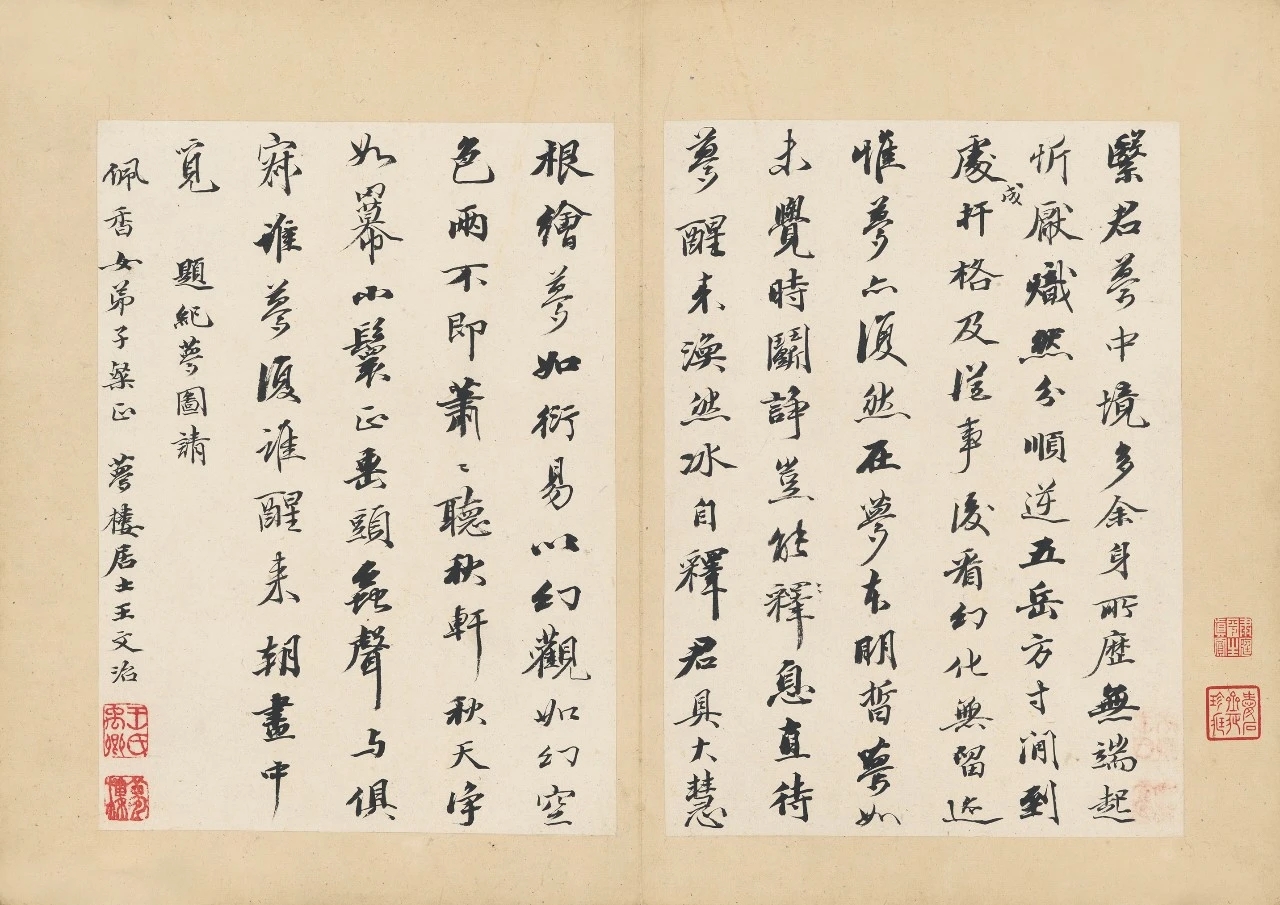 繄君夢中境多余身所歷無端起
忻厭熾然分順逆五岳方寸間到
處成扞格及從事後看幻化無留迹
惟夢亦復然在夢本明晳夢如
未覺時鬪諍豈能釋息直待
夢醒來渙然冰自釋君具大慧
根繪夢如衍易以幻觀如幻空
色兩不即蕭〻聽秋軒秋天净
如冪小鬟正垂頭蟲聲与俱
寂誰夢復誰醒來朝畫中
覓　題紀夢圖請
佩香女弟子粲正　夢樓居士王文治
王氏禹卿